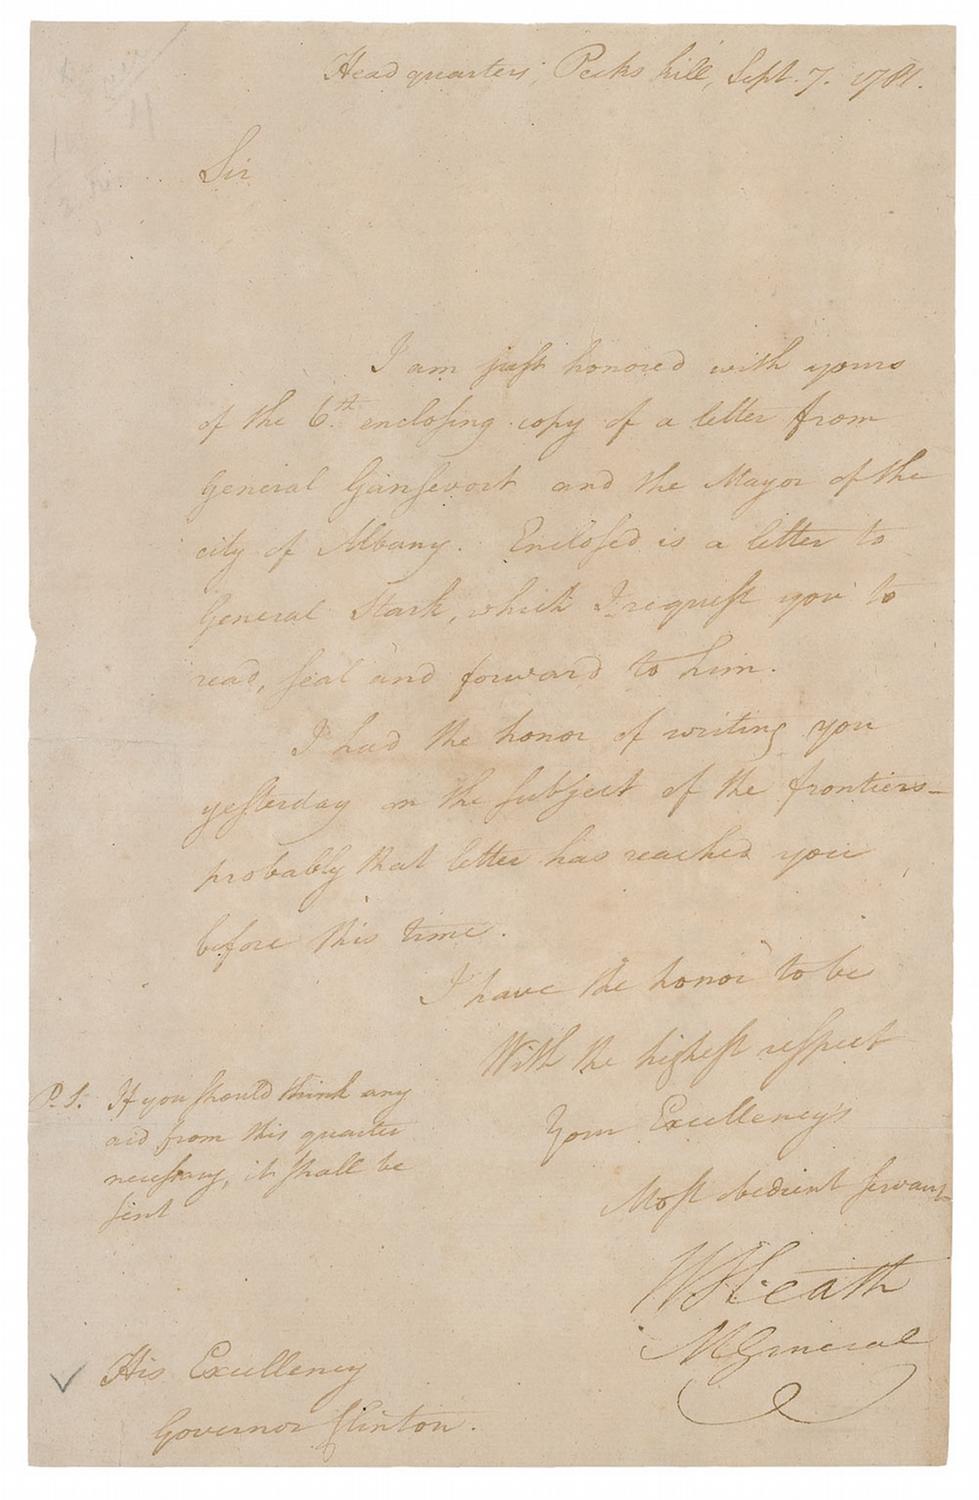 Head quarters, Peeks kill, Sept. 7. 1781.
Sir
I am just honored with yours
of the 6th. enclosing copy of a letter from
General Gansevort and the Mayor of the
city of Albany. Enclosed is a letter to
General Stark, which I request you to
read, seal and forward to him.
I had the honor of writing you
yesterday on the subject of the frontiers-
probably that letter has reached you
before this time.
I have the honor to be
With the highest respect
Your Excellency's
Most obedient servant
W Heath
M General
P. S. If you should think any
aid from this quarter
necessary, it shall be
sent
His Excellency
Governor Clinton.